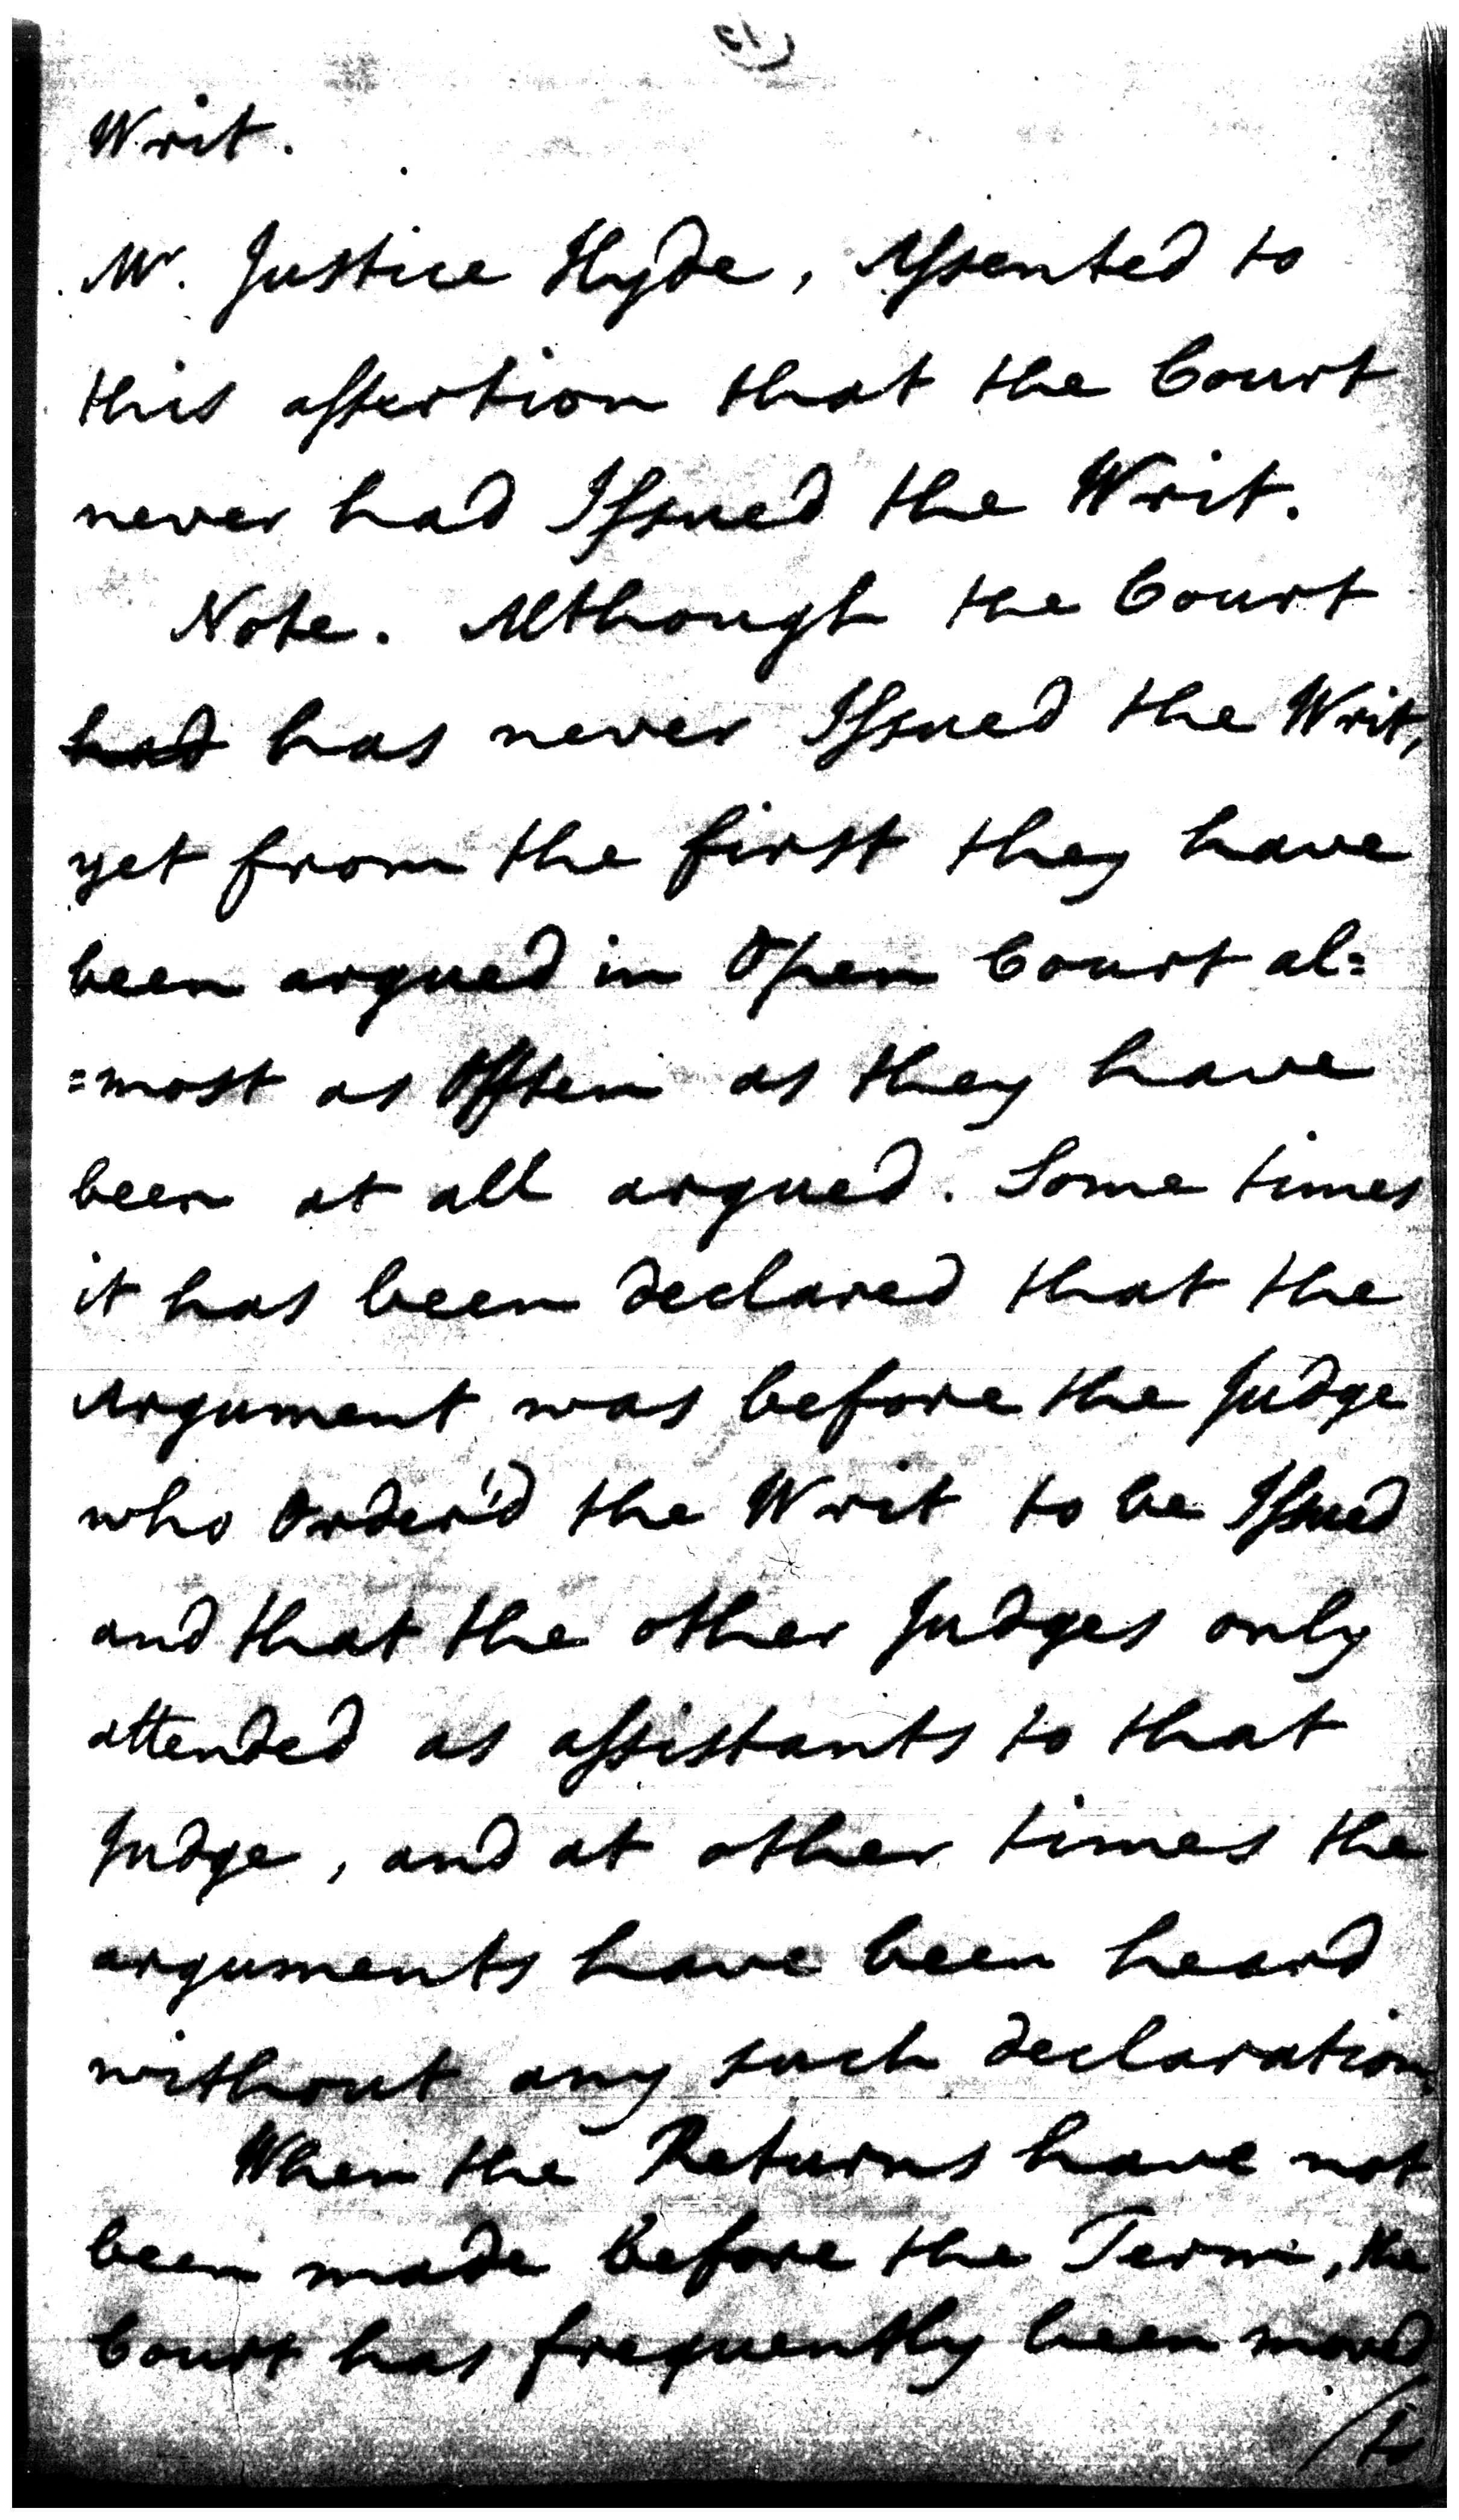 Writ.
Mr. Justice Hyde, Assented to
this assertion that the Court
never had Issued the Writ.
Note. Although the Court
had has never Issued the Writ,
yet from the first they have
been argued in Open Court al=
=most as Often as they have
been at all argued. Some times
it has been declared that the
Argument was before the Judge
who Order'd the Writ to be Issued
and that the other Judges only
attended as assistants to that
Judge, and at other times the
arguments have been heard
without any such declaration.
When the Returns have not
been made before the Term, the
Court has frequently been moved
/to